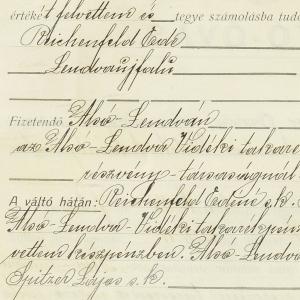 értéke t felvettem és tegye számolásba tudó
Reichenfeld Ede
Lendvaujfalu
Fizetendő Alsó-Lendván
az Alsó-Lendva Vidéki takaré
részvény-társaságnál
A váltó hátán: Reichenfeld Edéné s.k.
Alsó-Lendva-Vidéki takarékpén
vettem készpénzben. Alsó-Lendva
Spitzer Lajos s.k.